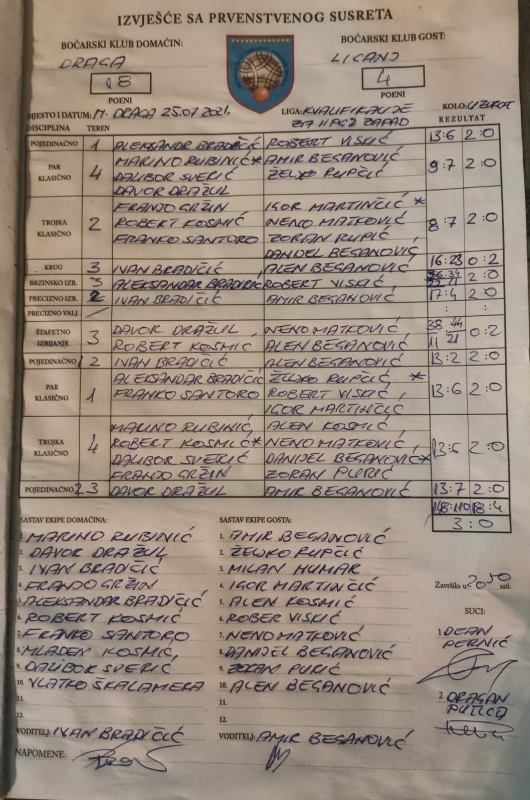 IZVJEŠĆE SA PRVENSTVENOG SUSRETA
BOĆARSKI KLUB DOMAĆIN: BOĆARSKI KLUB GOST:
DRAGA LIGANJ
18 4
POENI POENI
MJESTO I DATUM: M. DRAGA 25.07.2021. LIGA: KVALIFIKACIJE KOLO:
ZA II PGŽ ZAPAD
DISCIPLINA TEREN REZULTAT
POJEDINAČNO 1 ALEKSANDR BRADIČIĆ ROBERT VISKIĆ 13:6 2:0
PAR KLASIČNO 4 MARINO RUBINIĆ* AMIR BEGANOVIĆ 9:7 2:0
DALIBOR SVERIĆ ŽELJKO RUPČIĆ
DAVOR DRAŽUL
TROJKA KLASIČNO 2 FRANJO GRŽIN IGOR MARTINČIĆ * 8:7 2:0
ROBERT KOSMIĆ NENO MATKOVIĆ
FRANKO SANTORO ZORAN RUPIĆ
DANIJEL BEGANOVIĆ
KRUG 3 IVAN BRADIČIĆ ALEN BEGANOVIĆ 16:23 0:2
BRZINSKO IZB. 3 ALEKSANDAR BRADIČIĆ ROBERT VISKIĆ 2:0
PRECIZNO IZB. 2 IVAN BRADIČIĆ AMIR BEGANOVIĆ 17:4 2:0
PRECIZNO VALJ. / : :
ŠTAFETNO IZBIJANJE 3 DAVOR DRAŽUL, NENO MATKOVIĆ 38 44 0:2
ROBERT KOSMIĆ ALEN BEGANOVIĆ 11 21
POJEDINAČNO 2 IVAN BRADIČIĆ ALEN BEGANOVIĆ 13:2 2:0
PAR KLASIČNO 1 ALEKSANDAR BRADIČIĆ ŽELJKO RUPČIĆ * 13:6 2:0
FRANKO SANTORO ROBERT VISKIĆ,
IGOR MARTINČIĆ
TROJKA KLASIČNO 4 MARINO RUBINIĆ, ALEN KOSMIĆ 13:6 2:0
ROBERT KOSMIĆ* NENO MATKOVIĆ
DALIBOR SVERIĆ DANIJEL BEGANOVIĆ*
FRANJO GRŽIN ZORAN PURIĆ
POJEDINAČNO 2 3 DAVOR DRAŽUL AMIR BEGANOVIĆ 13:7 2:0
18:4
3:0
SASTAV EKIPE DOMAĆINA: SASTAV EKIPE GOSTA:
1. MARINO RUBINIĆ 1. AMIR BEGANOVIĆ
2. DAVOR DRAŽUL 2. ŽELJKO RUPČIĆ
3. IVAN BRADIČIĆ 3. MILAN HUMAR
4. FRANJO GRŽIN 4. IGOR MARTINČIĆ Završilo u 20:50 sati.
5. ALEKSANDAR BRADIČIĆ 5. ALEN KOSMIĆ
6. ROBERT KOSMIĆ 6. ROBER VISKIĆ SUCI:
7. FRANKO SANTORO 7. NENO MATKOVIĆ 1. DEAN PERNIĆ
8. MLADEN KOSMIĆ, 8. DANIJEL BEGANOVIĆ
9. DALIBOR SVERIĆ, 9. ZORAN PURIĆ
10. VLATKO ŠKALAMERA 10. ALEN BEGANOVIĆ
11. 11. 2. DRAGAN
12. 12.
VODITELJ: IVAN BRADIČIĆ VODITELJ: AMIR BEGANOVIĆ
NAPOMENE: